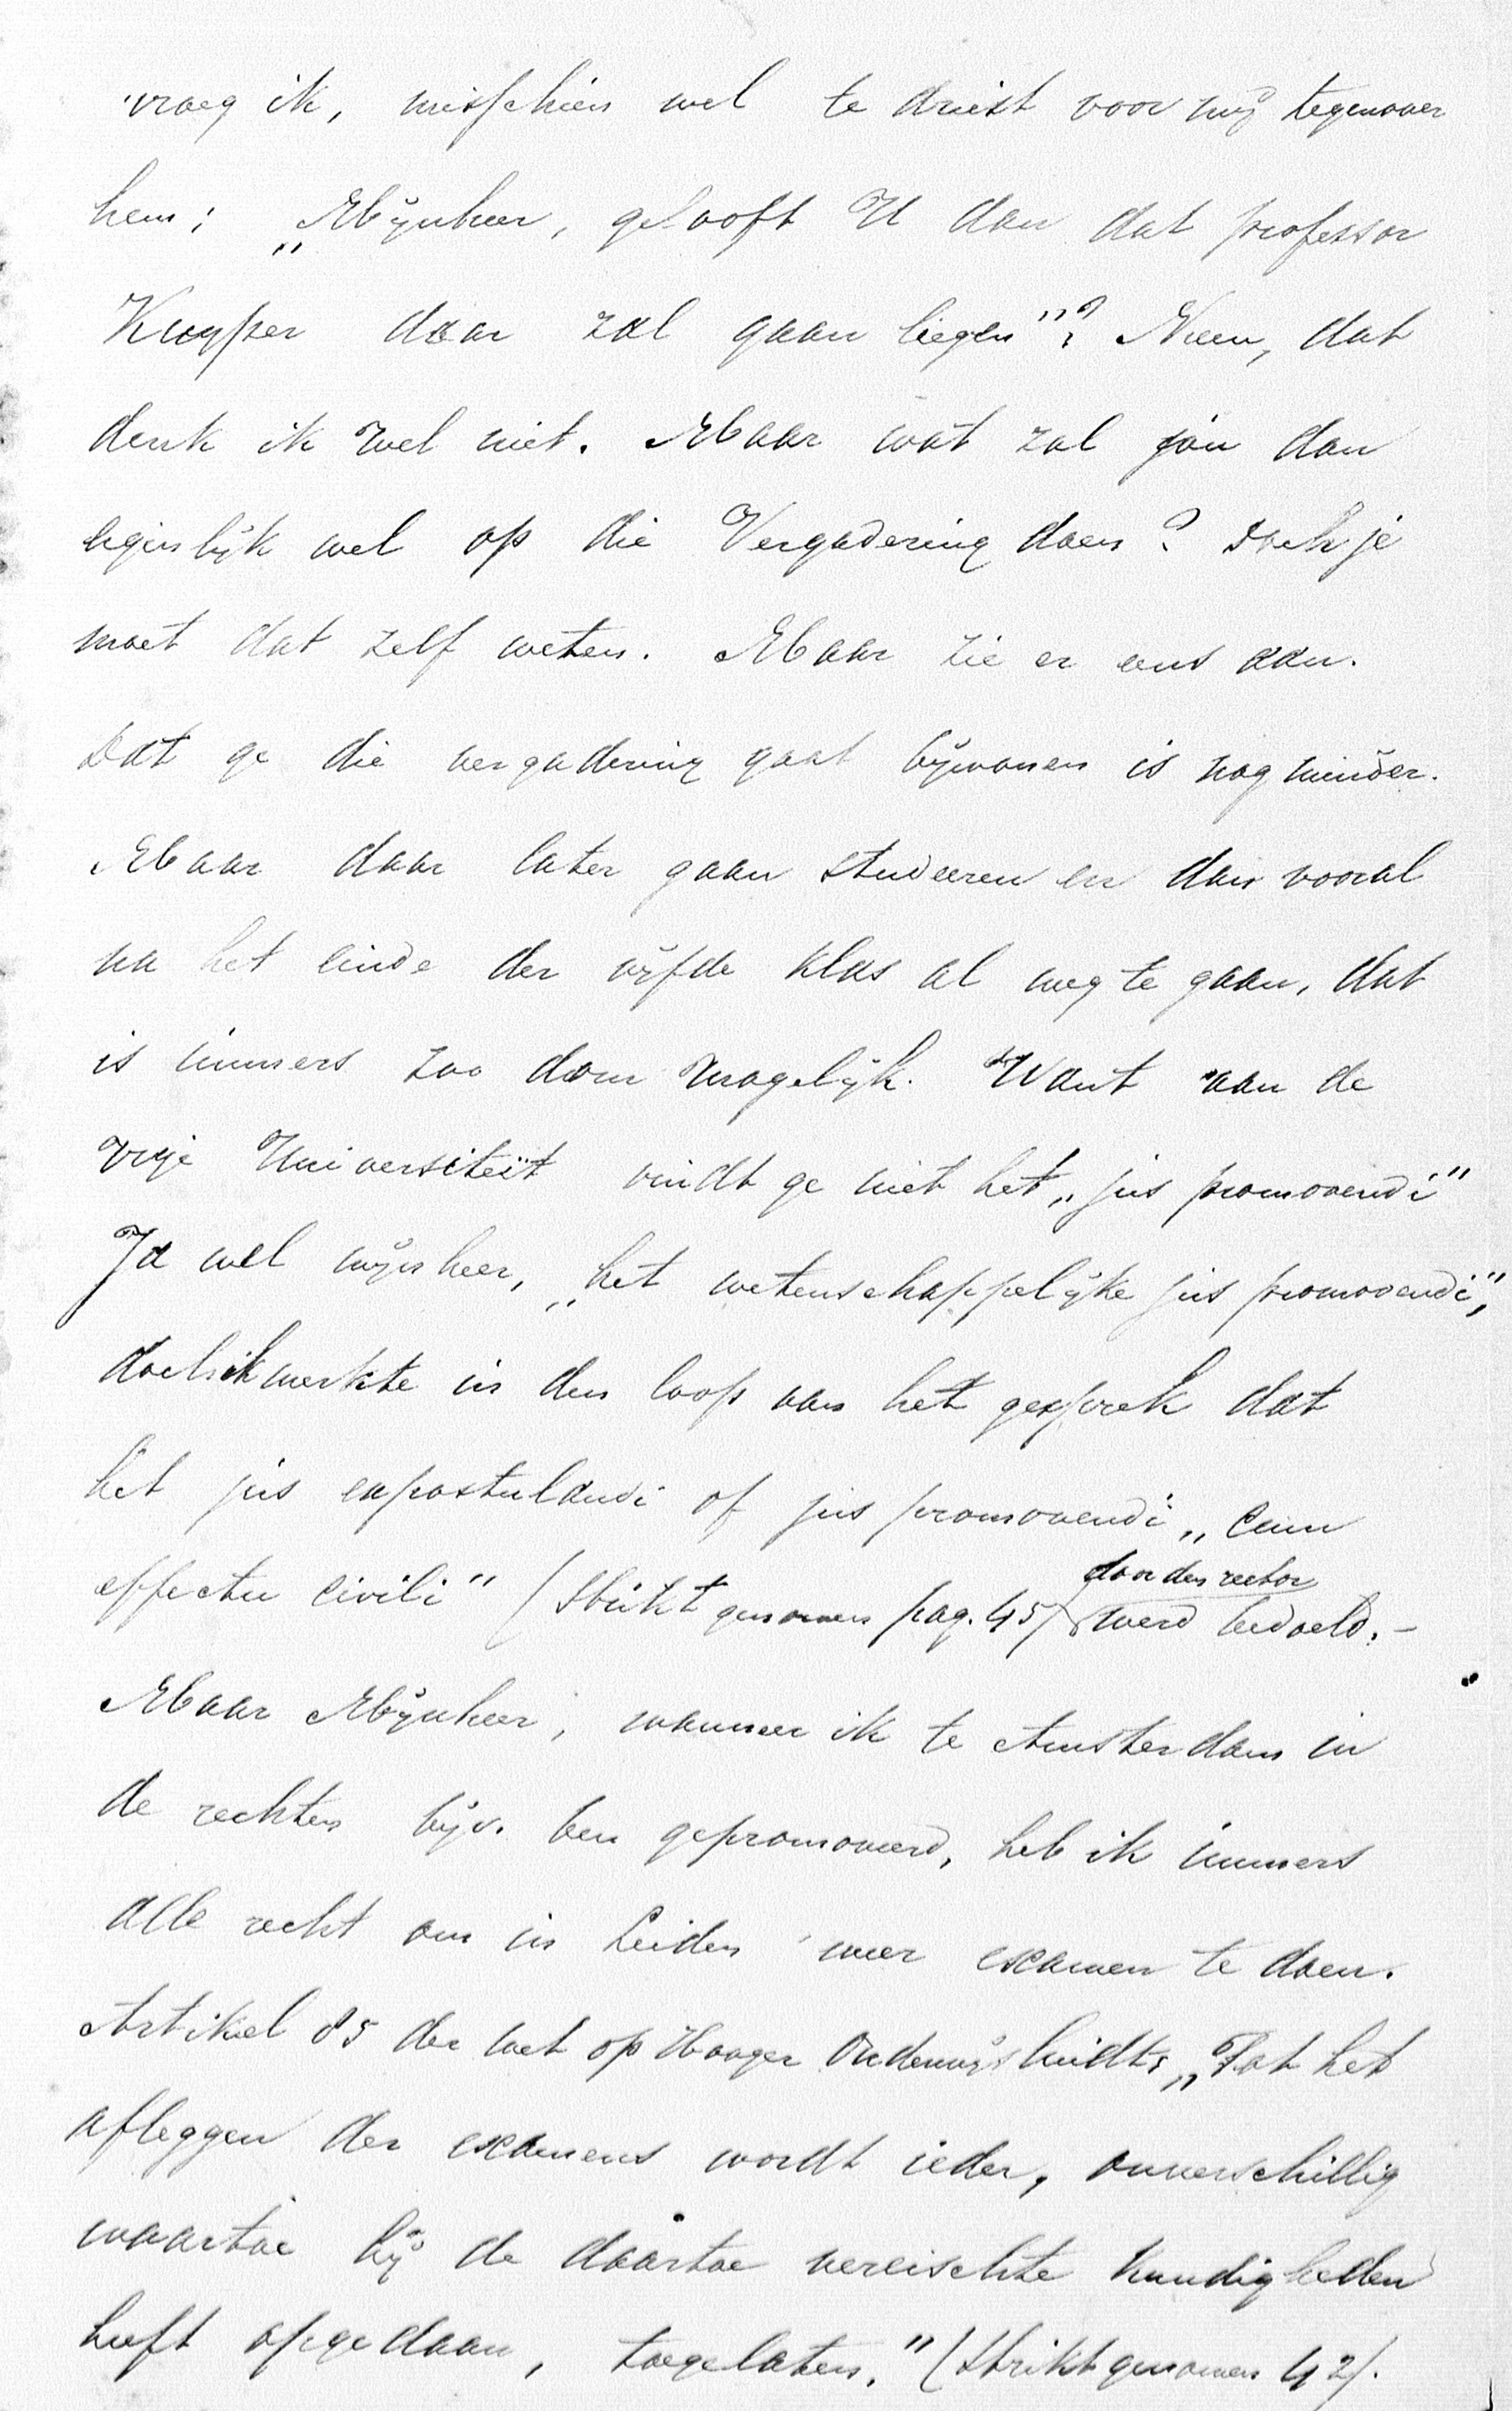 vroeg ik, misschien wel te driest voor mij tegenover
hem; „Mijnheer, gelooft U dan dat professor
Kuyper daar zal gaan liegen"? Neen, dat
denk ik wel niet. Maar wat zal jou dan
eigenlijk wel op die Vergadering doen? Doch je
moet dat zelf weten. Maar zie er eens aan.
Dat ge die vergadering gaat bijwonen is nog minder.
Maar daar later gaan studeeren en dan vooral
na het einde der vijfde klas al weg te gaan, dat
is immers zoo dom mogelijk. Want aan de
Vrije Universiteit vindt ge niet het „jus promovendi"
Ja wel mijnheer, „het wetenschappelijke jus promovendi",
doch ik merkte in den loop van het gesprek dat
het jus expostulandi of jus promovendi „cum
effectu civili" (Strikt genomen pag. 45) door den rector werd bedoeld. –
Maar Mijnheer, wanneer ik te Amsterdam in
de rechten bijv. ben gepromoveerd, heb ik immers
alle recht om in Leiden weer examen te doen.
Artikel 85 der wet op Hooger Onderwijs luidt: „Tot het
afleggen der examens wordt ieder, onverschillig
waartoe hij de daartoe vereischte kundigheden
heeft opgedaan, toegelaten." (Strikt genomen 42).